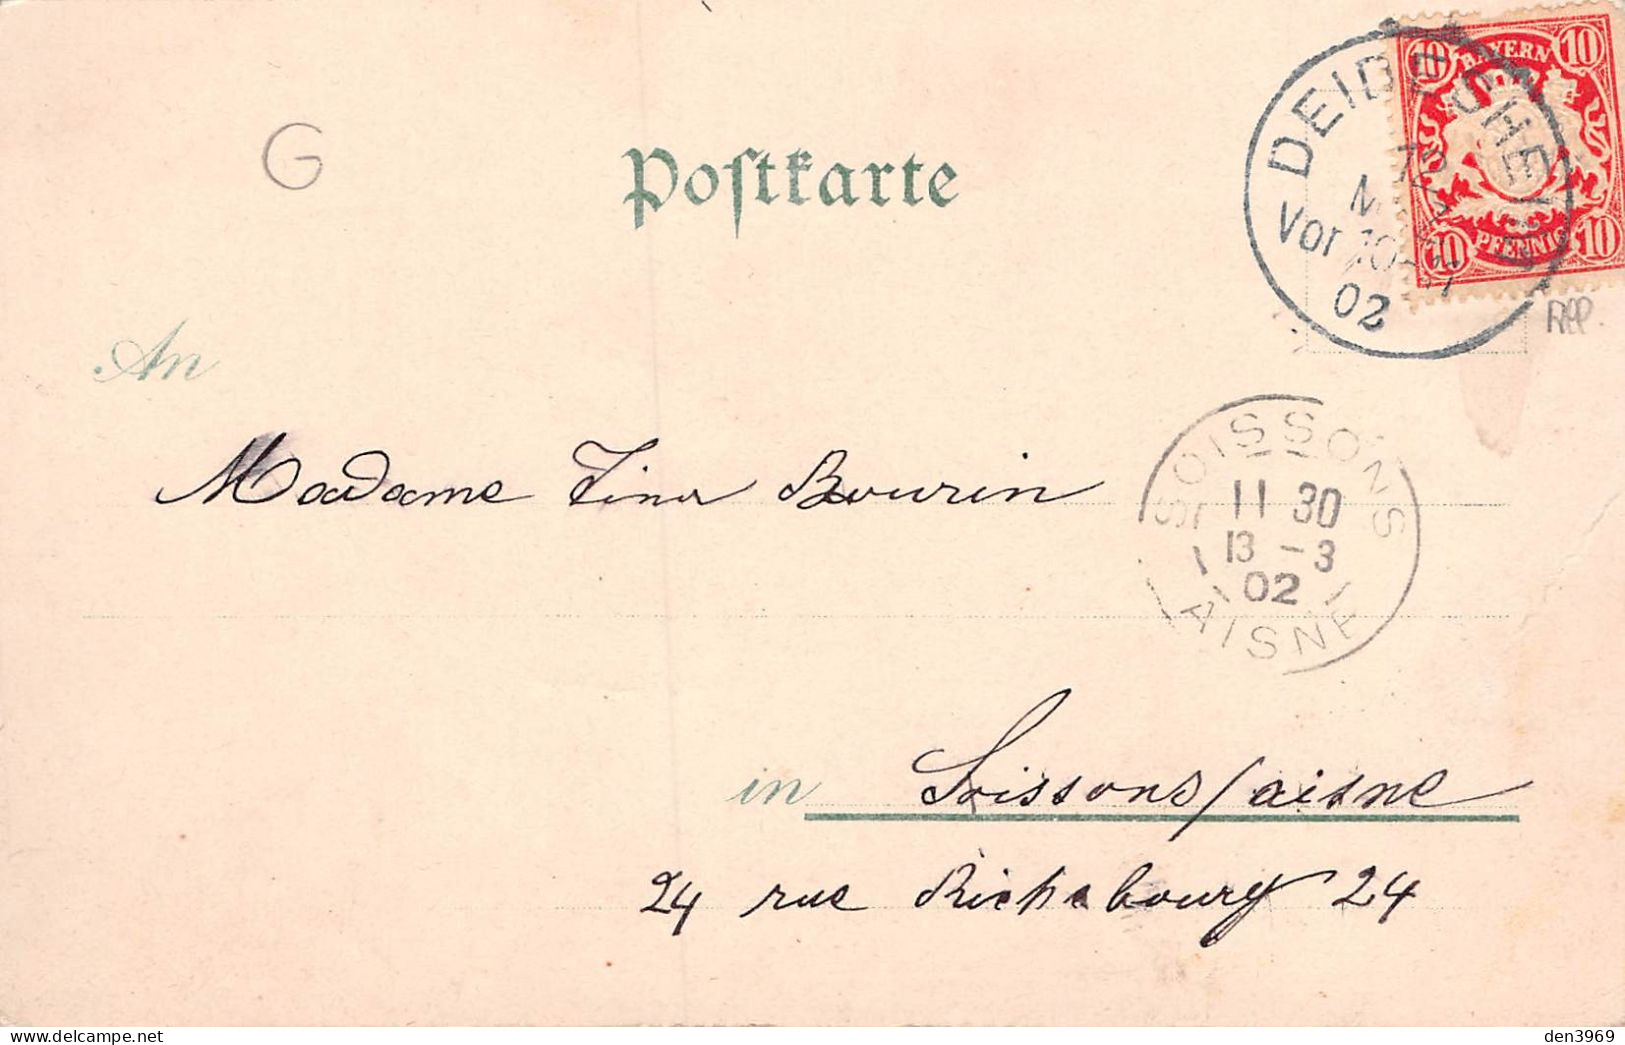 G
Postkarte
10 BAYERN 10
10 PFENNIG 10
DEIDESHEIM
12 MRZ
Vor 10-11
02
Rep.
An
Madame Tina Bourin
SOISSONS
11 30
13 - 3
02
AISNE
in Soissons / aisne
24 rue Richebourg 24
den3969